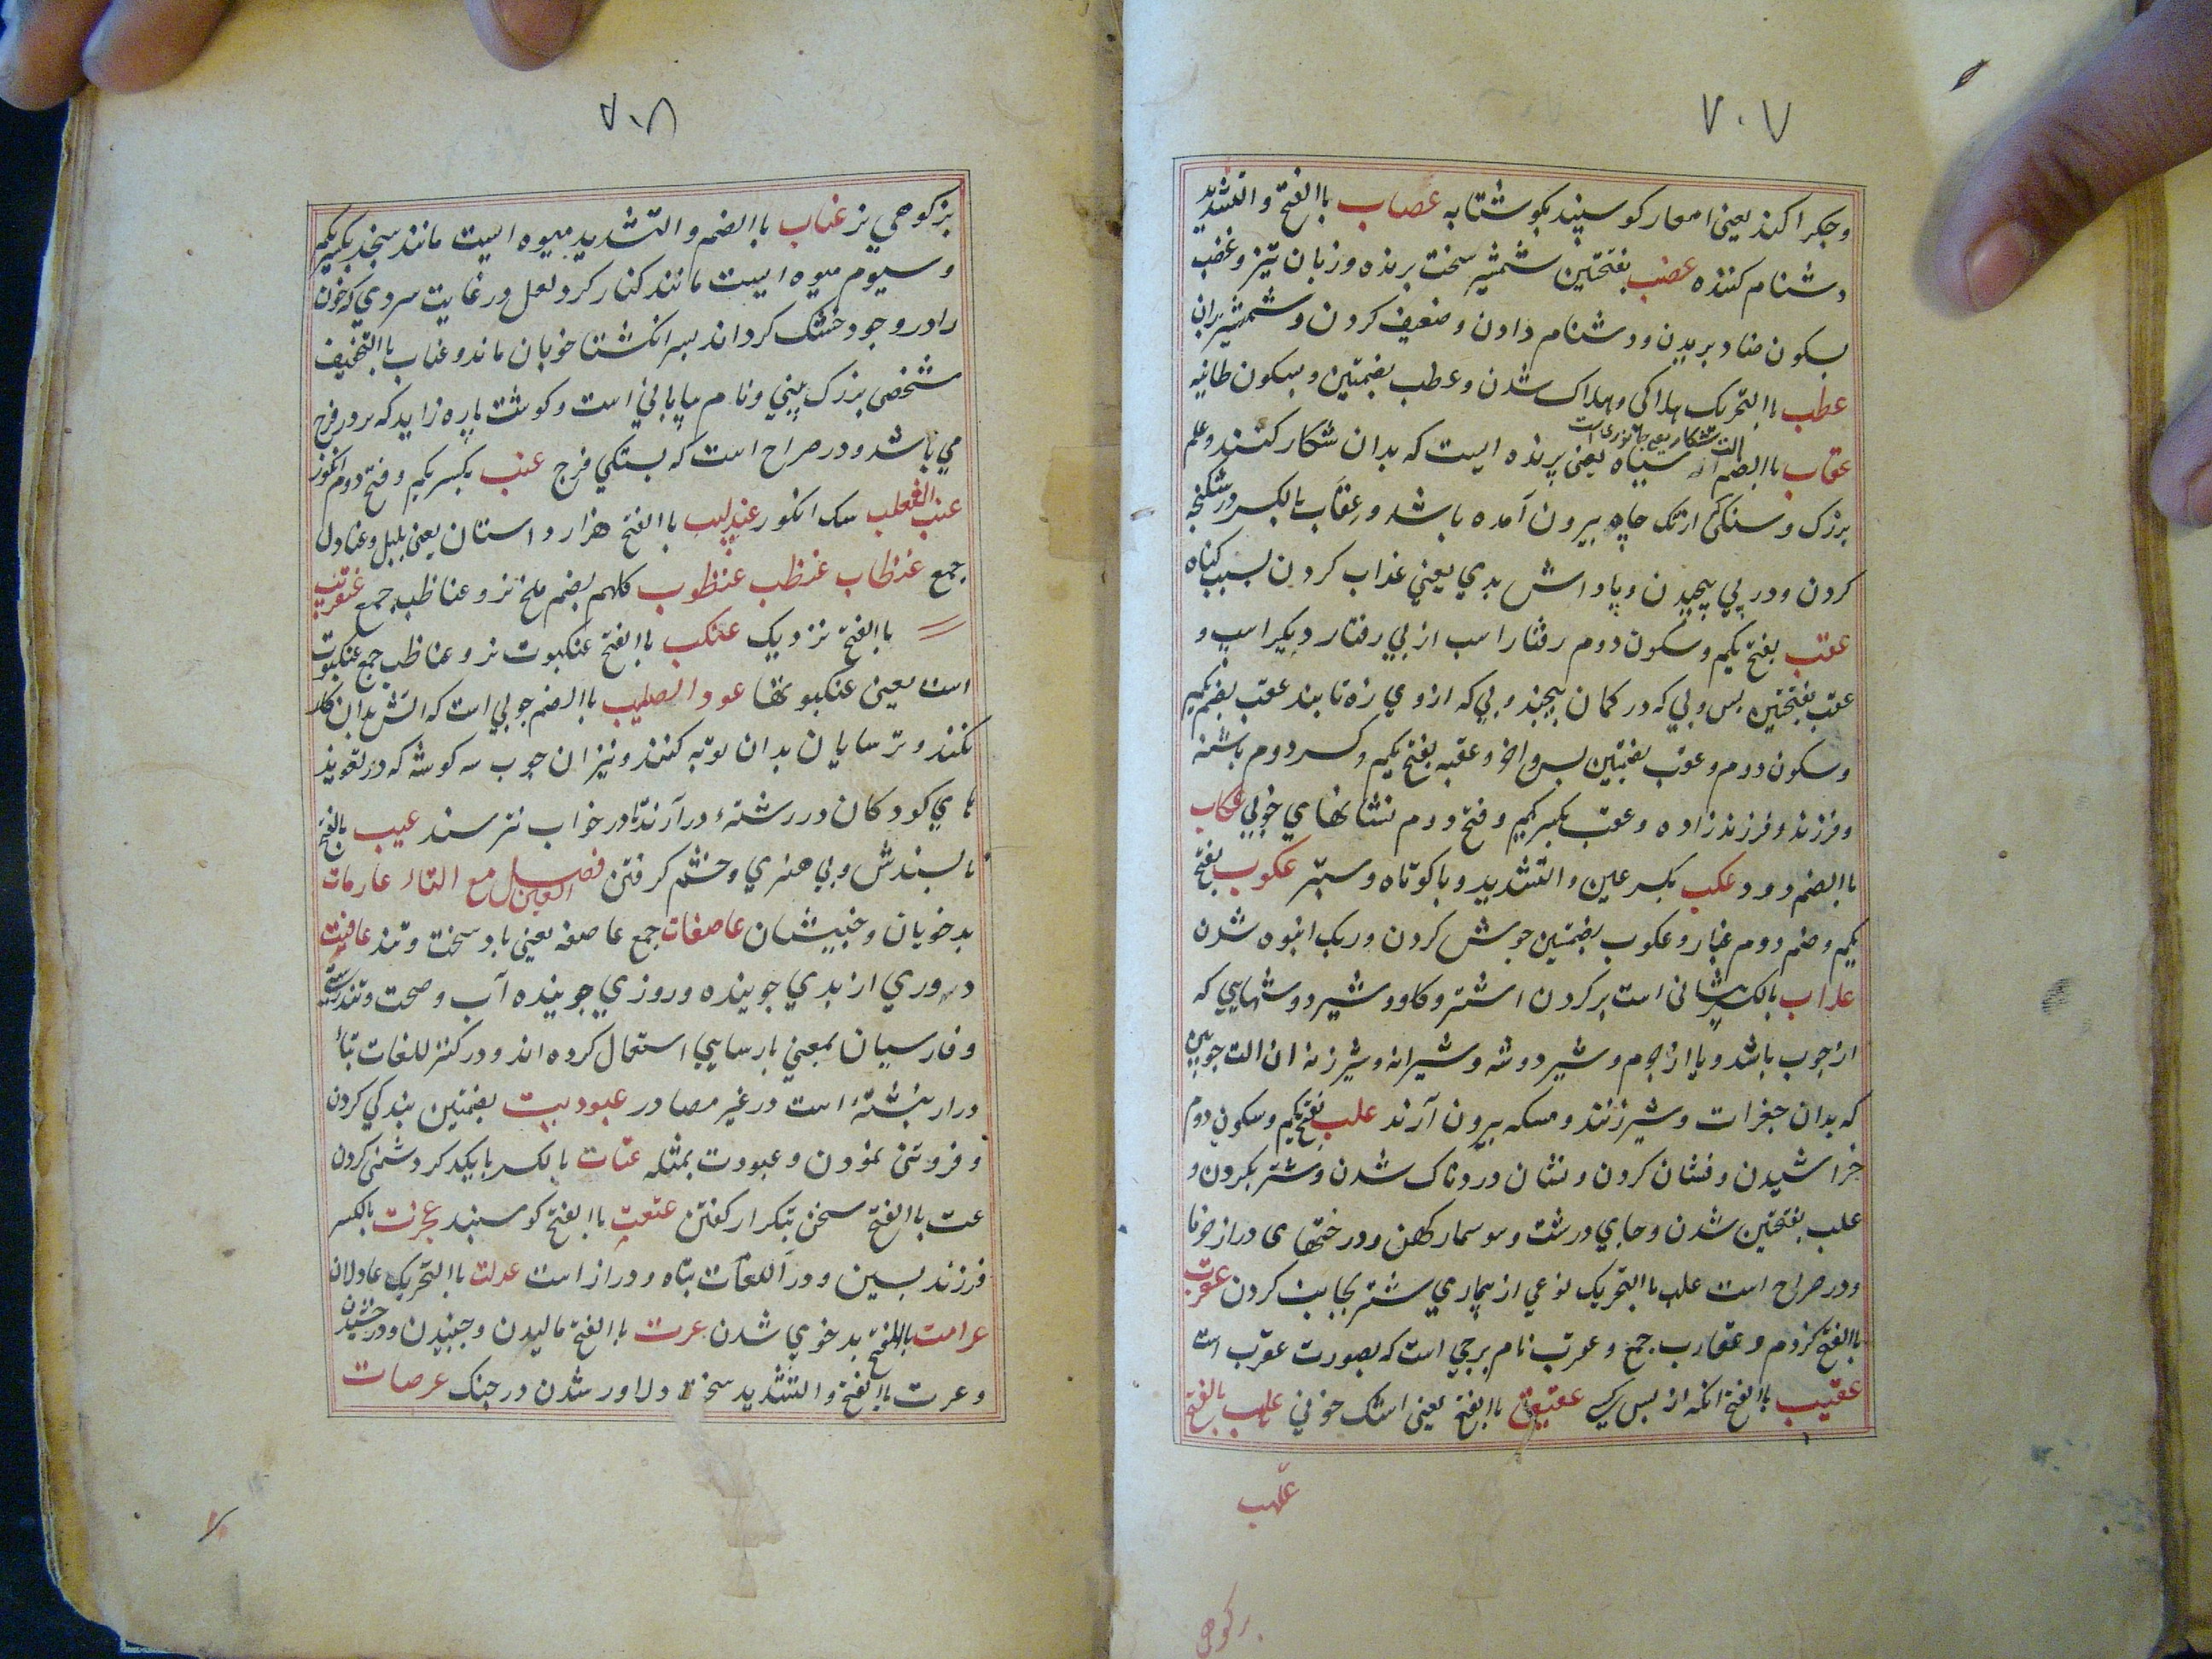 ۷۰۷
وجکر اکند یعنی امعار کوسپند بکوشتابه عصاب باالفتح والتشدید
دشنام کننده عضب بفتحتین شمشیر سخت برنده وزبان تیز وعضب
بسکون ضاد بریدن ودشنام دادن وضعیف کردن وشمشیر بران
عطب باالتحریک هلاکی وهلاک شدن وعطب بضمتین وبسکون طانیه
عقاب باالضم اله سیاه یعنی پرنده ایست که بدان شکار کنند وعلم
بزرک وسنکی ازتک چاه بیرون آمده باشد وعقاب بالکسر در شکنجه
کردن ودر پی پیچیدن وپاداش بدی یعنی عذاب کردن بسبب کناه
عقب بفتح یکم وسکون دوم رفتار اسب از پی رفتار دیکر اسپ و
عقب بفتحتین پس وپی که در کمان پیچند وپی که ازوی زه تابند عقب بضم یکم
وسکون دوم وعقب بضمتین پس واخر وعقبه بفتح یکم وکسر دوم پاشنه
وفرزند وفرزند زاده وعقب بکسر یکم وفتح دوم نشانهای خوبی عکاب
باالضم دود عکب بکسر عین والتشدید وبا کوتاه وستبر عکوب بفتح
یکم وضم دوم غبار وعکوب بضمتین جوش کردن ودیک انبوه شدن
علاب بالکسر نشانی است بر کردن اشتر وکاو وشیر دوشهایی که
از چوب باشد ویا از چرم وشیر دوشه وشیرانه وشیرزنه ان الت چوبین
که بدان جغرات وشیر زنند ومسکه بیرون آرند علب بفتح یکم وسکون دوم
خراشیدن ونشان کردن ونشان دردناک شدن وشتر بکردن و
علب بفتحتین شدن وجای درشت وسوسمار کهن ودرختهای دراز خرما
ودر صراح است علب باالتحریک نوعی از بیماری شتر بجانب کردن عقرب
باالفتح کژدم وعقارب جمع وعقرب نام برجی است که بصورت عقرب است
عقیب باالفتح انکه از پس کسی عقیق باالفتح یعنی اشک خونی علهب بالفتح
علهب
بزکوهی
۷۰۸
بزکوهی نر عناب باالضم والتشدید میوه ایست مانند سنجد بکسر یکم
وسیوم میوه ایست مانند کنار کرد لعل در غایت سردی که خون
را در وجود خشک کرداند بسر انکشتا خوبان ماند وعناب باالتخفیف
شخصی بزرک بینی ونام بیابانی است وکوشت پاره زاید که بر در فرج
می باشد ودر صراح است که بستکی فرج عنب بکسر یکم وفتح دوم انکور
عنب الثعلب سک انکور عندلیب باالفتح هزار داستان یعنی بلبل وعنادل
جمع عنظاب عنظب عنظوب کلهم بضم ملخ نر وعناظب جمع عنقریب
باالفتح نزدیک عنکب باالفتح عنکبوت نر وعناظب جمع عنکبوت
است یعنی عنکبوتها عود الصلیب باالضم چوبی است که اتش بدان کار
نکند وترسایان بدان توبه کنند ونیز ان چوب سه کوشه که در تعویذ
های کودکان در رشته درآرند تا در خواب نترسند عیب بالفتح
ناپسندش وبی هنری وخشم کرفتن فصل العین مع التاء عارمات
بدخویان وخبیثان عاصفات جمع عاصفه یعنی باد سخت وتند عافیت
دوری از بدی جوینده وروزی جوینده آب وصحت وتندرستی
وفارسیان بمعنی پارسایی استعمال کرده اند ودر کنز اللغات بتاء
دراز نبشته است در غیر مصادر عبودیت بضمتین بندکی کردن
وفروتنی نمودن وعبودت بمثله عتات بالکسر با یکدکر دشمنی کردن
عت باالفتح سخن بتکرار کفتن عتعت باالفتح کوسپند عجزت بالکسر
فرزند پسین ودر اللغات بتاه دراز است عدلت باالتحریک عادلان
عرامت باالفتح بدخوی شدن عرت باالفتح مالیدن وجنبیدن ودرخشیدن
وعرت باالفتح والتشدید سخت دلاور شدن در جنک عرصات